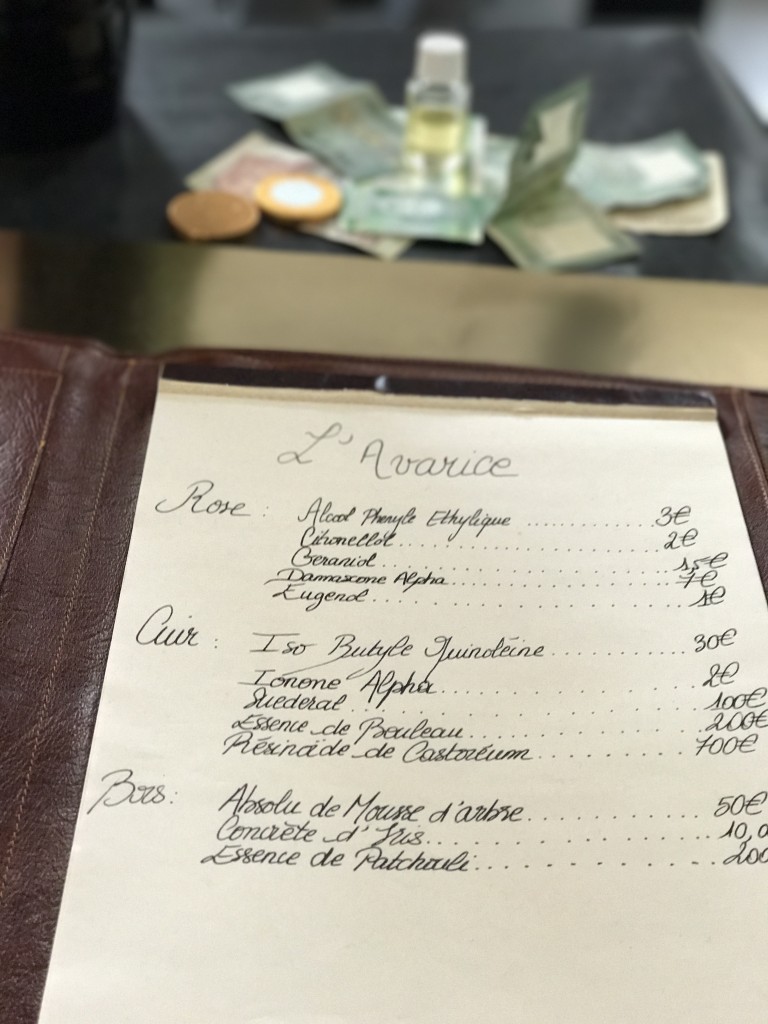 L'Avarice
Rose : Alcool Phenyle Ethylique ............ 3€
Citronellol ............ 2€
Geraniol ............ 1,5€
Damascone Alpha ............ 7€
Eugenol ............ 1€
Cuir : Iso Butyle Quinoléine ............ 30€
Ionone Alpha ............ 2€
Suederal ............ 100€
Essence de Bouleau ............ 200€
Résinoïde de Castoréum ............ 700€
Bois : Absolu de Mousse d'arbre ............ 50€
Concrète d'Iris ............ 10,0
Essence de Patchouli ............ 200